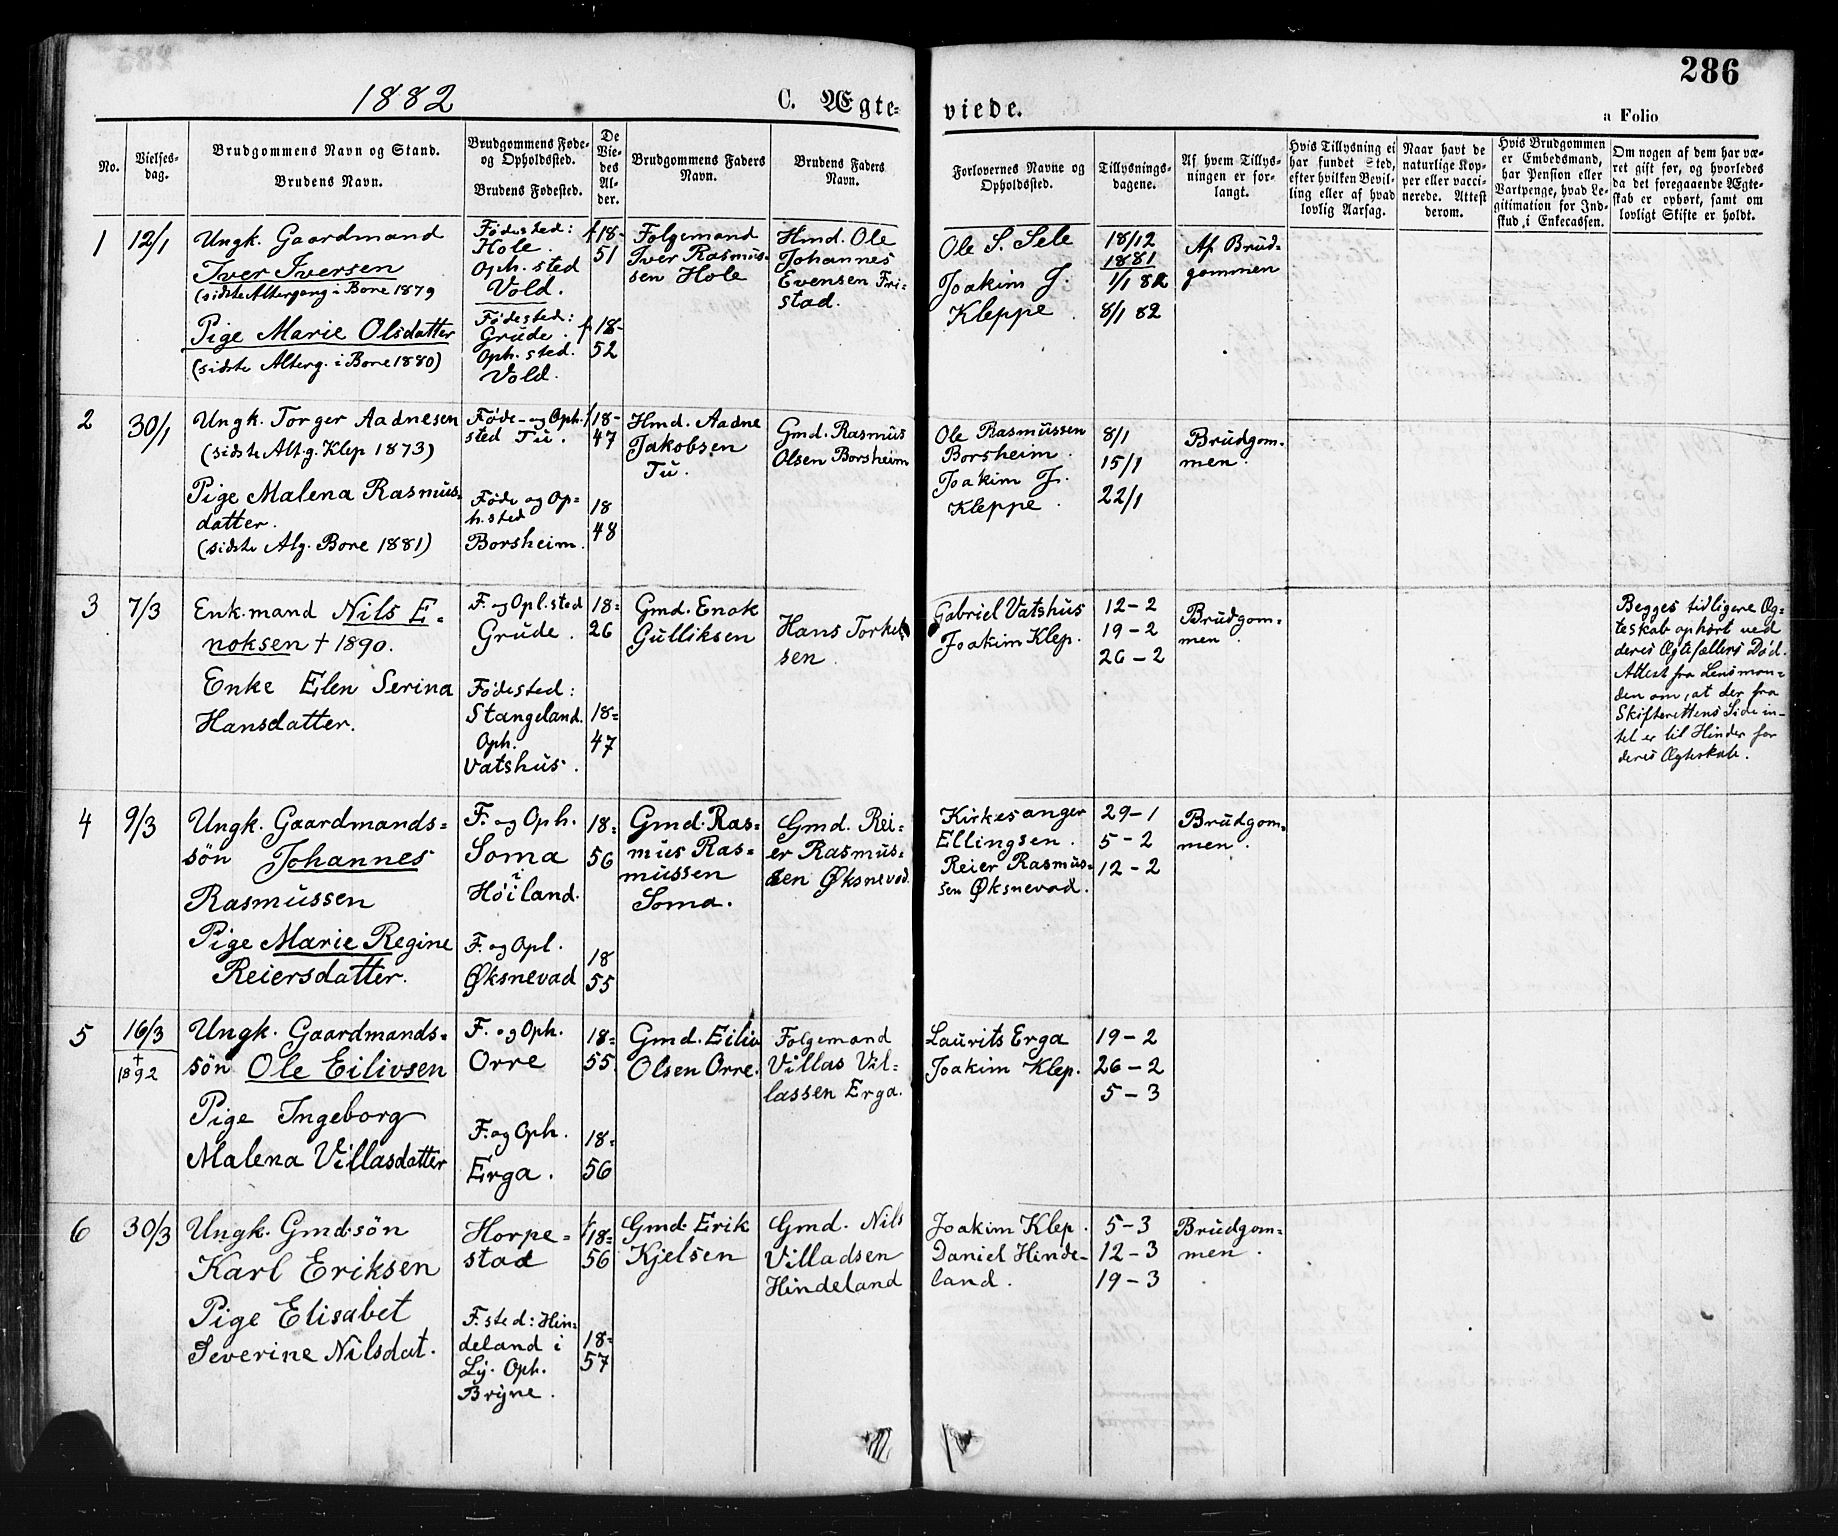 286
1882
C. Ægte-
viede.
a Folio
No.
Vielses-
dag.
Brudgommens Navn og Stand.
Brudens Navn.
Brudgommens Føde-
og Opholdssted.
Brudens Fødested.
De
Vie-
des
Al-
der.
Brudgommens Faders
Navn.
Brudens Faders
Navn.
Forlovernes Navne og
Opholdssted.
Tillysnings-
dagene.
Af hvem Tillys-
ningen er for-
langt.
Hvis Tillysning ei
har fundet Sted,
efter hvilken Bevil-
ling eller af hvad
lovlig Aarsag.
Naar havt de
naturlige Kop-
per eller vacci-
nerede. Attest
derom.
Hvis Brudgommen
er Embedsmand,
har Pension eller
Vartpenge, hvad Le-
gitimation for Ind-
skud i Enkecassen.
Om nogen af dem har væ-
ret gift før, og hvorledes
da det foregaaende Ægte-
skab er ophørt, samt om
lovligt Skifte er holdt.
1
12/1
Ungk. Gaardmand
Iver Iversen
(sidste Altergang i Bore 1879
Pige Marie Olsdatter
(sidste Alterg. i Bore 1880)
Fødested:
Hole.
Oph. sted
Vold.
Fødested:
Grude.
Oph. sted.
Vold.
f 18-
51
f 18-
52
Følgemand
Iver Rasmus-
sen Hole
Hmd. Ole
Johannes
Evensen Fri-
stad.
Ole S. Sele
Joakim J.
Kleppe.
18/12
1881
1/1 82
8/1 82
Af Brud-
gommen
2
30/1
Ungk. Torger Aadnesen
(sidste Alt.g. Klep 1873)
Pige Malena Rasmus-
datter.
(sidste Alg. Bore 1881)
Føde- og Oph.
sted Tu.
Føde og Op-
h. sted
Borsheim.
f 18-
47
18
48
Hmd. Aadne
Jakobsen
Tu.
Gmd. Rasmus
Olsen Borsheim
Ole Rasmussen
Borsheim.
Joakim J.
Kleppe.
8/1
15/1
22/1
Brudgom-
men.
3
7/3
Enk.mand Nils E-
noksen † 1890.
Enke Elen Serina
Hansdatter.
F. og Opl. sted
Grude.
Fødested:
Stangeland.
Oph.
Vatshus.
18=
26
18=
47
Gmd. Enok
Gulliksen
Hans Torkel
sen.
Gabriel Vatshus
Joakim Klep.
12-2
19-2
26-2
Brudgom-
men.
Begges tidligere Æg-
teskab ophørt ved
deres Ægtefællers Død.
Attest fra Lensman-
den om, at der fra
Skifterettens Side in-
tet er til Hinder for
deres Ægteskab.
4
9/3
Ungk. Gaardmands=
søn Johannes
Rasmussen
Pige Marie Regine
Reiersdatter.
F. og Oph.
Soma
i
Høiland.
F. og Opl.
Øksnevad
18=
56
18
55
Gmd. Ras=
mus Ras=
mussen
Soma.
Gmd. Rei-
er Rasmus=
sen Øksnevad.
Kirkesanger
Ellingsen.
Reier Rasmus=
sen Øksnevad.
29-1
5-2
12-2
Brudgom=
men.
5
16/3
†
1892
Ungk. Gaardmands=
søn Ole Eilivsen
Pige Ingeborg
Malena Villasdatter
F. og Oph.
Orre
F. og Oph.
Erga.
18=
55
18=
56
Gmd. Eiliv
Olsen Orre.
Følgemand
Villas Vil-
lassen Erga.
Laurits Erga
Joakim Klep.
19-2
26-2
5-3
6
30/3
Ungk. Gmdsøn
Karl Eriksen
Pige Elisabet
Severine Nilsdat.
Horpe=
stad
F. sted: Hin-
deland i
Ly. Oph.
Bryne.
f 18=
56
18=
57
Gmd. Erik
Kjelsen
Gmd. Nils
Villadsen
Hindeland
Joakim Klep.
Daniel Hinde-
land.
5-3
12-3
19-3
Brudgom=
men.